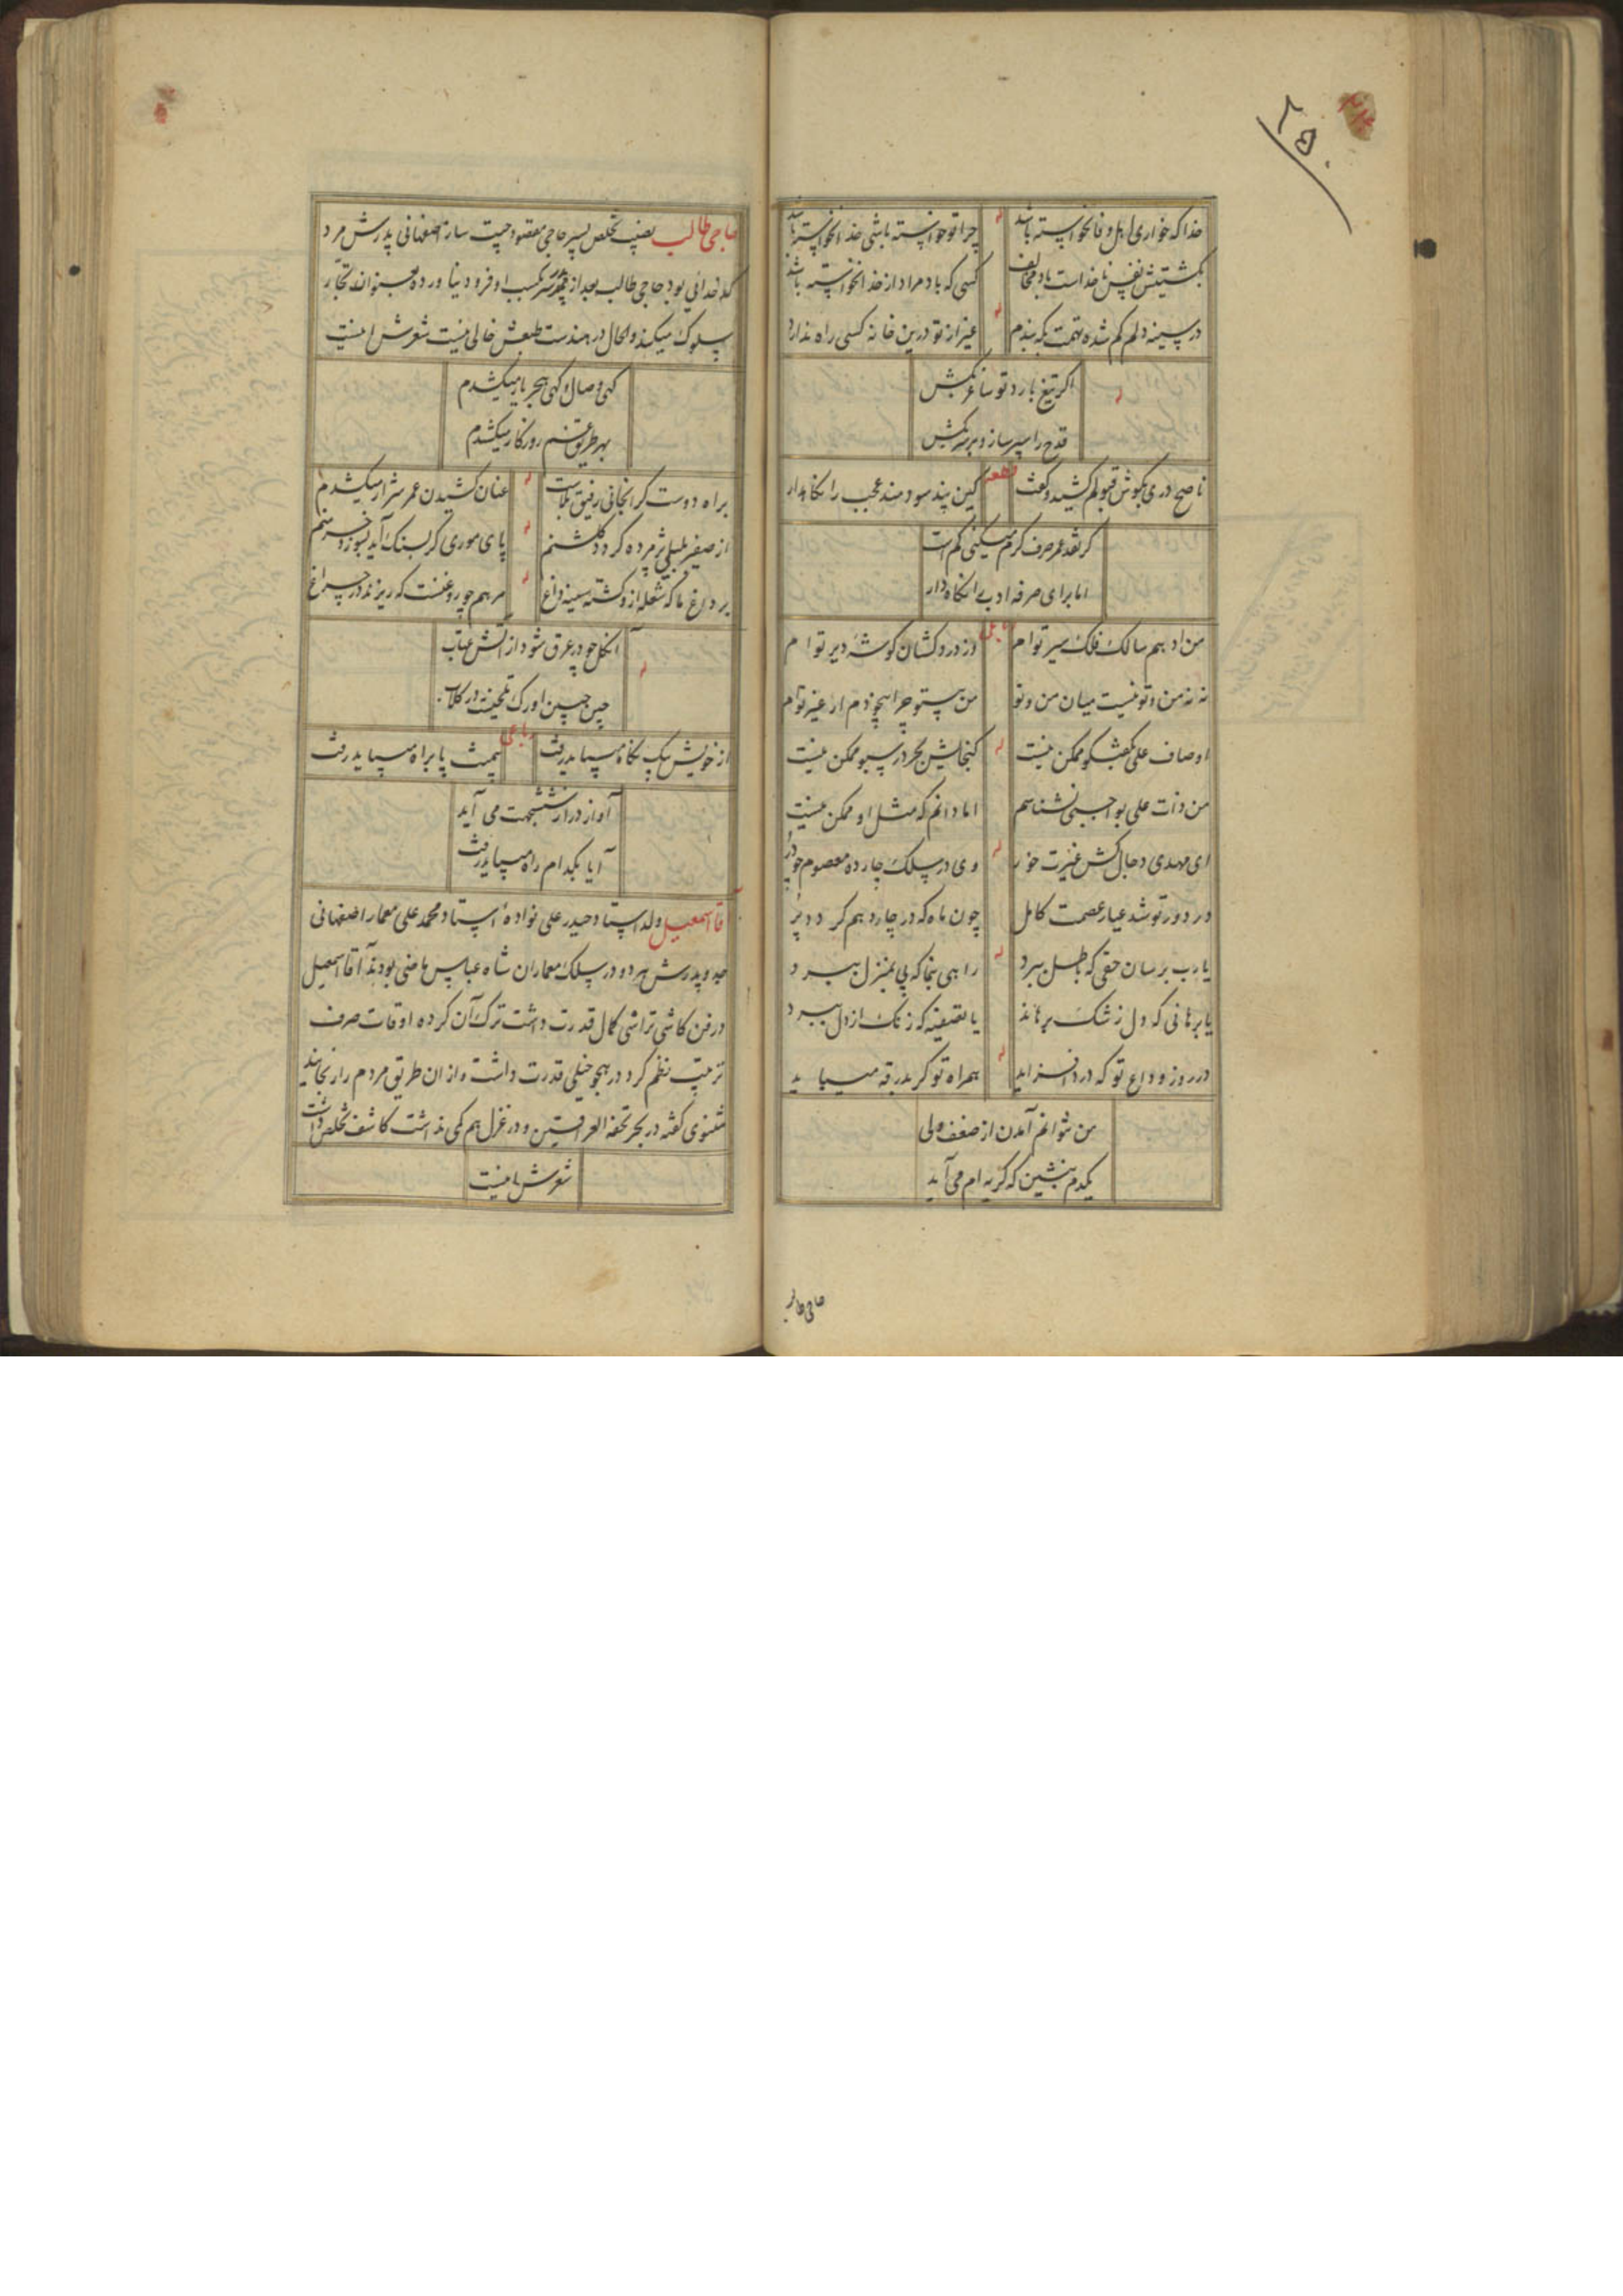 خدا که خواری اهل وفا نخواسته باشد چرا تو خواسته باشی خدا نخواسته باشد
بکشتیش نفس ناخداست باد مخالف کسی که باد مراد از خدا نخواسته باشد
در سینه دلم گم شده تهمت بکه بندم غیر از تو درین خانه کسی راه ندارد
اگر تیغ بارد تو ساغر بکش
قدح را سپر ساز و بر سر بکش
ناصح دری بگوش قبولم کشید و گفت قطعه کین پند سودمند عجب را نگاهدار
گر نقد عمر صرف کرم میکنی کم است
اما برای صرفه ادب را نگاه دار
من ادهم سالک فلک سیر توام وز دردکشان گوشهٔ دیر توام
نه نه من و تو نیست میان من و تو من بیتو چرا بیخودم ار غیر توام
اوصاف علی بگفتگو ممکن نیست گنجایش بحر در سبو ممکن نیست
من ذات علی بواجبی نشناسم اما دانم که مثل او ممکن نیست
ای مهدی دجال کش غیرت خور وی در سلک چارده معصوم چو در
در دور تو شد عیار عصمت کامل چون ماه که در چاردهم گردد پر
یا رب برسان حقی که باطل ببرد راهی بنما که پی بمنزل ببرد
یا برهانی که دل ز شک برهاند یا تصفیه که زنک از دل ببرد
در روز وداع تو که درد افزاید همراه تو گر بدرقه میباید
من نتوانم آمدن از ضعف ولی
یکدم بنشین که گریه ام می آید
حاجی طالب
حاجی طالب نصیب تخلص پسر حاجی مقصود چیت ساز اصفهانی پدرش مرد
کدخدائی بود حاجی طالب بعد از فوت پدر بکسب او فرود نیاورده بعنوان تجار
سلوک میکند والحال در هندست طبعش خالی نیست شعرش اینست
گهی وصال و گهی هجر یار میکشدم
بهر طریق غم روزگار میکشدم
براه دوست گرانجانی رفیق بلاست عنان کشیدن عمر شرار میکشدم
از صفیر بلبلی پژمرده گردد گلشنم پای موری گر بسنک آید بسوزد خرمنم
بر داغ ما که شعله ازو گشته سینه داغ مرهم چو روغنست که ریزند در چراغ
آن گل چو در عرق شود از آتش عتاب
چین جبین او رک تلخیست در گلاب
از خویش بیک نگاه میباید رفت رباعی بیمنت پا براه میباید رفت
آواز درا ز ششجهت می آید
آیا بکدام راه میباید رفت
آقا اسمعیل ولد استاد حیدر علی نوادهٔ استاد محمد علی معمار اصفهانی
جد و پدرش هر دو در سلک معماران شاه عباس ماضی بودند آقا اسمعیل
در فن کاشی تراشی کمال قدرت داشت ترک آن کرده اوقات صرف
ترتیب نظم کرد در هجو خیلی قدرت داشت و از ان طریق مردم را رنجانید
مثنوی گفته در بحر تحفة العراقین و در غزل هم کمی نداشت کاشف تخلص داشت
شعرش اینست